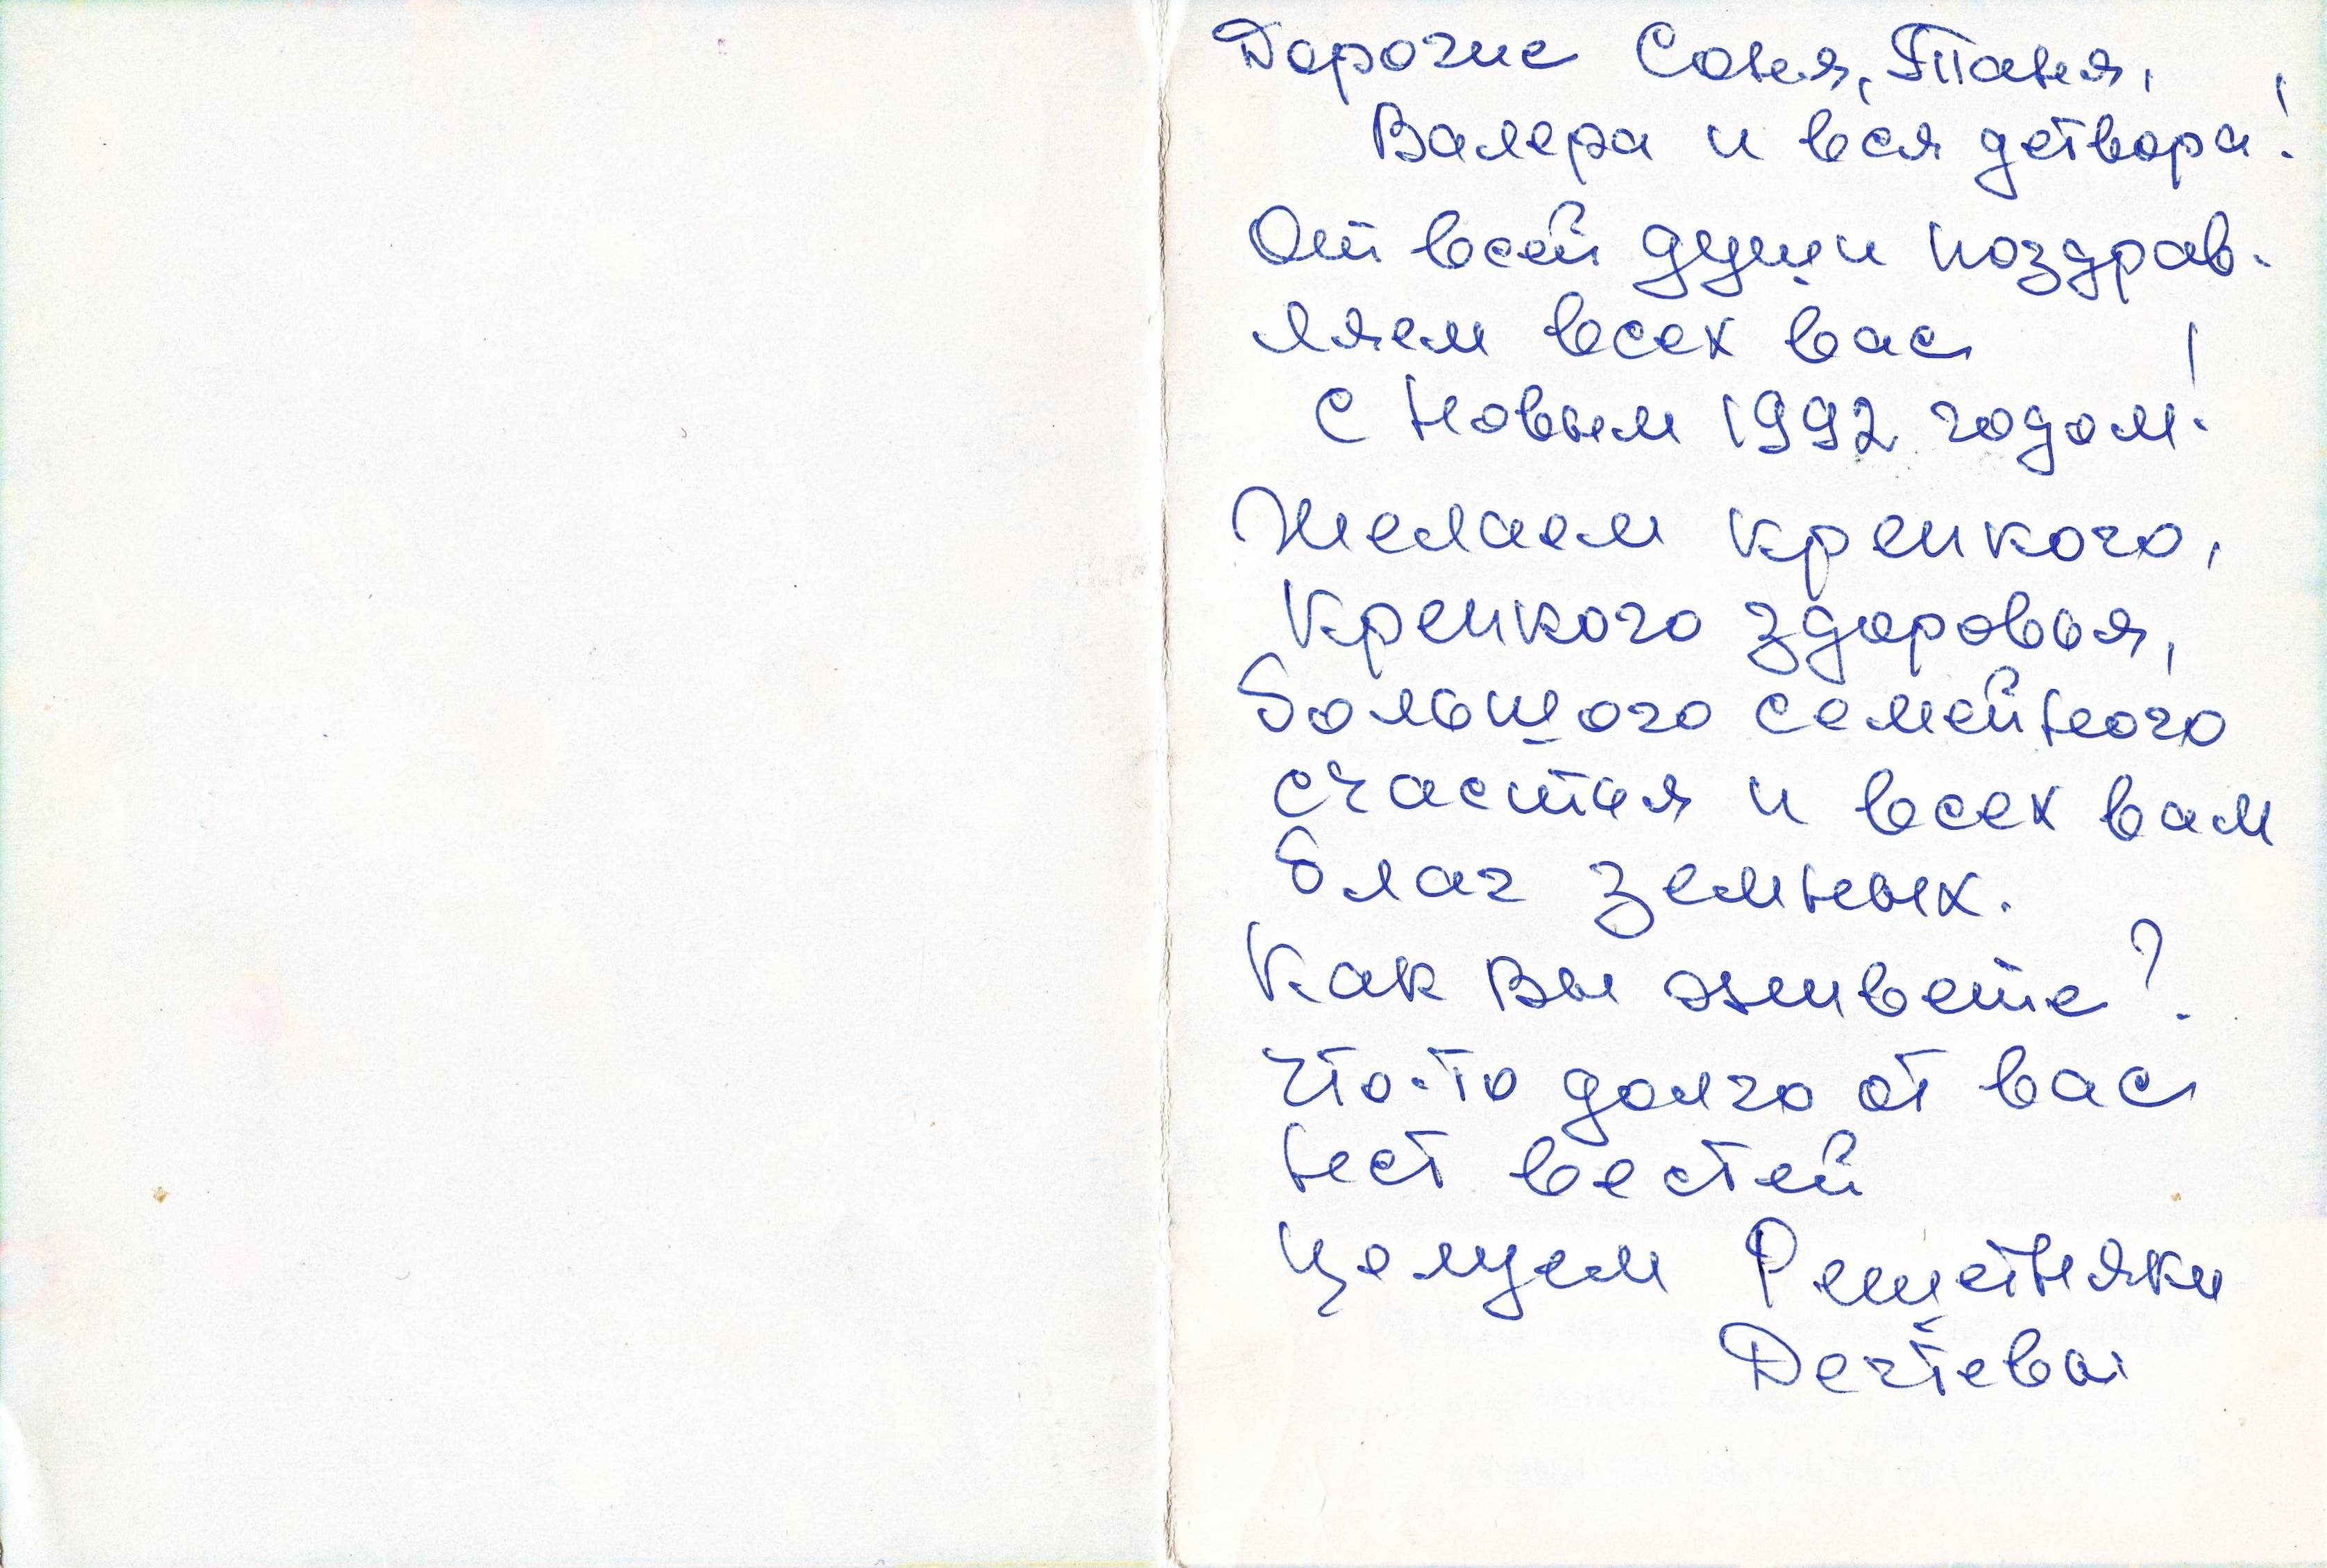 Дорогие Соня, Таня,
Валера и вся детвора!
От всей души поздрав-
ляем всех вас
с Новым 1992 годом!
Желаем крепкого,
крепкого здоровья,
большого семейного
счастья и всех вам
благ земных.
Как вы живете?
Что-то долго от вас
нет вестей
Целуем Решетняки
Дегтевы